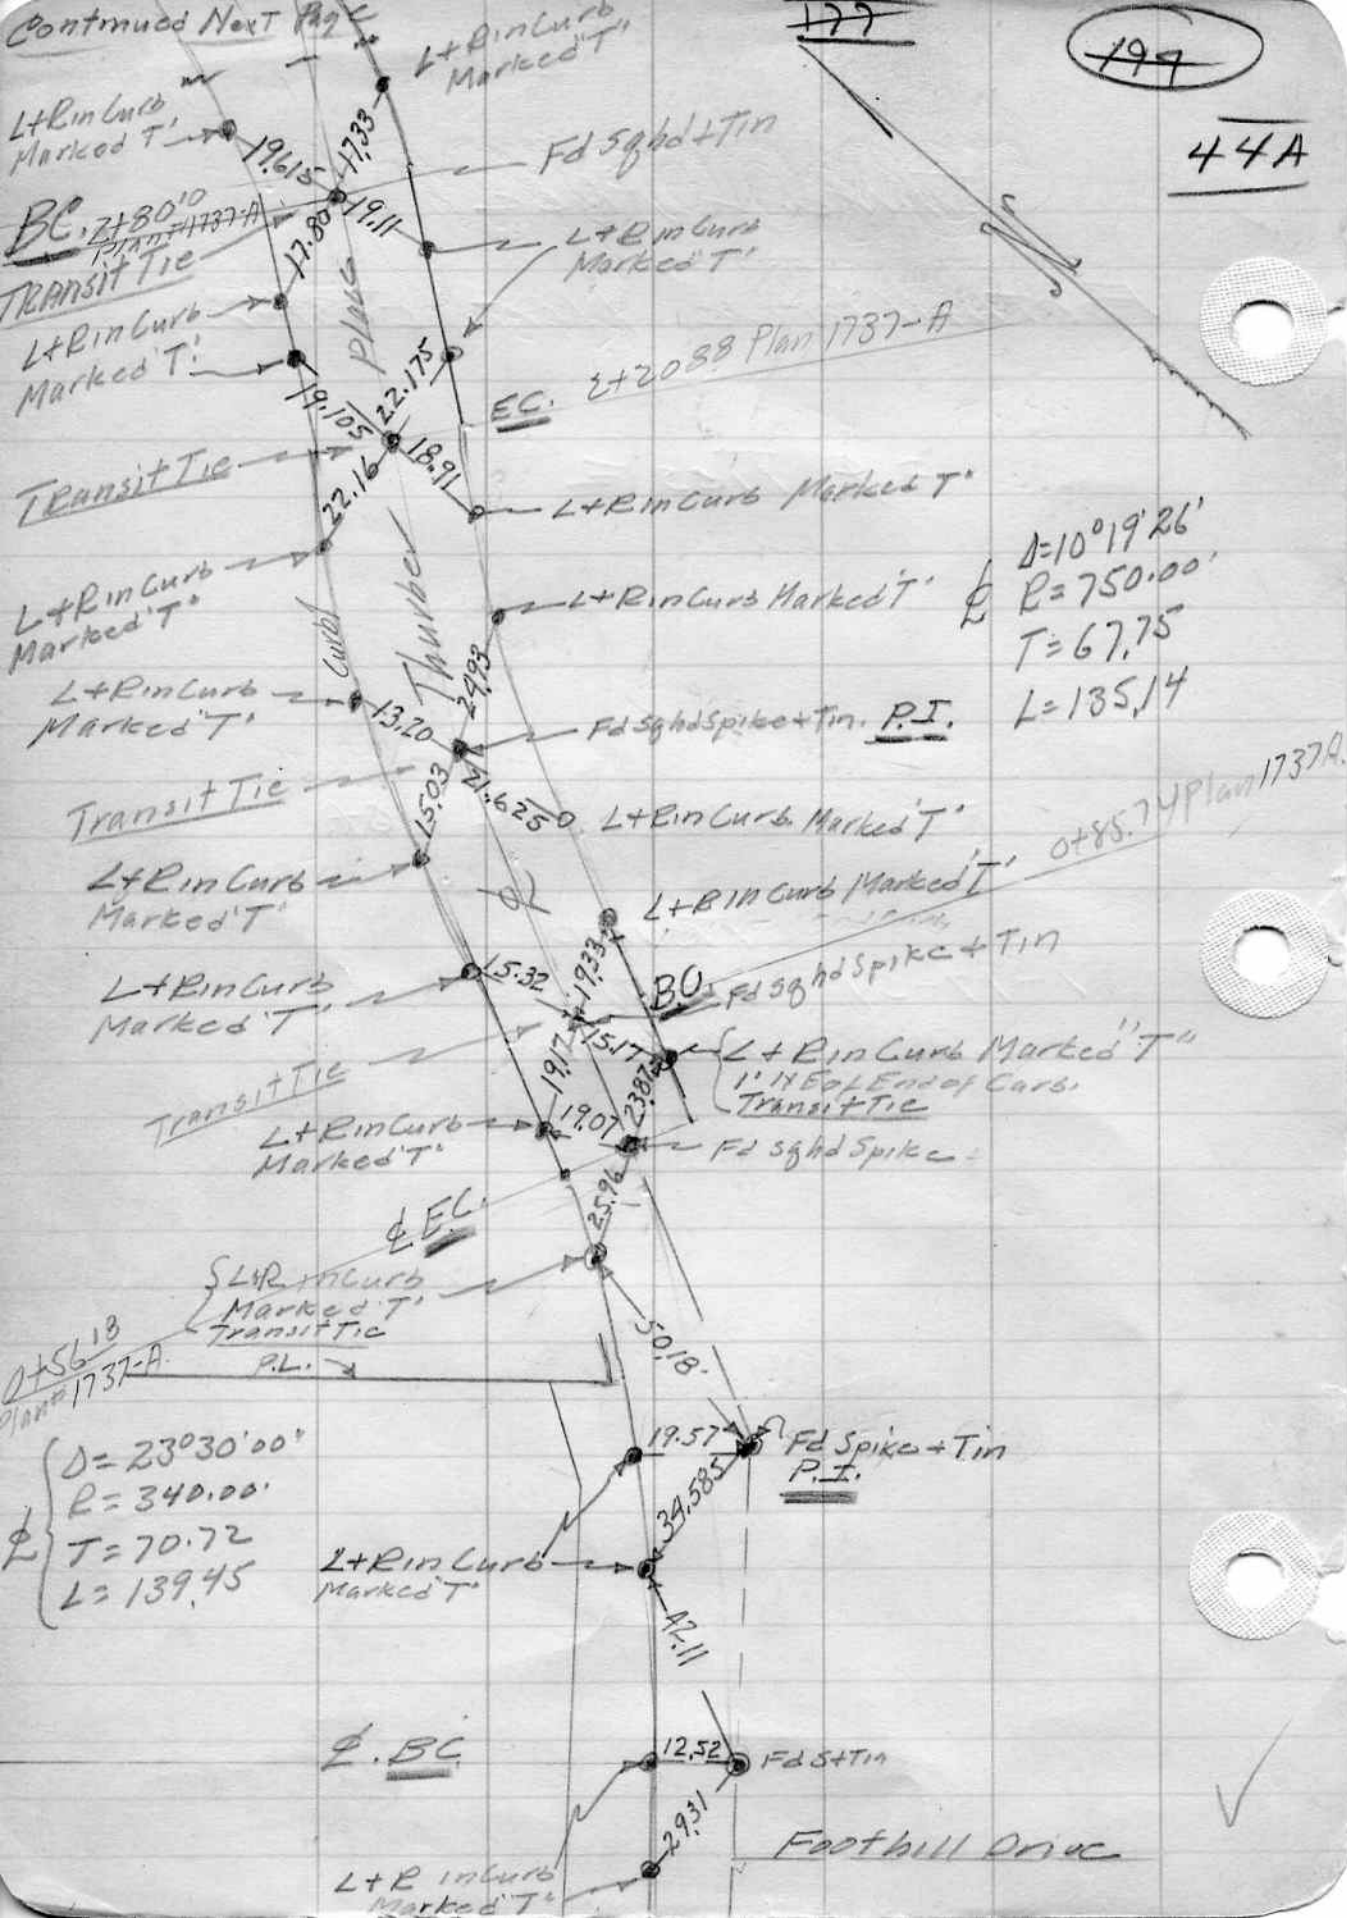 Continued Next Page
177
199
44A
L+R in Curb
Marked 'T'
L+R in Curb
Marked 'T'
19.615
17.33
Fd Sqhd + Tin
BC. 2+80.10
Plan #1737-A
Transit Tie
17.80
19.11
L+R in Curb
Marked 'T'
L+R in Curb
Marked 'T'
Place
22.175
19.105
EC. 2+20.88 Plan 1737-A
Transit Tie
22.16
18.91
L+R in Curb Marked 'T'
Δ=10°19'26"
℄ R=750.00'
T=67.75
L=135.14
L+R in Curb
Marked 'T'
Curb
Thurber
L+R in Curb Marked 'T'
L+R in Curb
Marked 'T'
13.20
24.93
Fd Sqhd Spike + Tin. P.I.
Transit Tie
15.03
21.625
L+R in Curb Marked 'T'
0+85.74 Plan 1737A.
L+R in Curb
Marked 'T'
℄
L+R in Curb Marked 'T'
L+R in Curb
Marked 'T'
15.32
19.33
B.C.
Fd Sqhd Spike + Tin
Transit Tie
19.17
15.17
23.87
L + R in Curb Marked "T"
1' N E of End of Curb.
Transit Tie
L+R in Curb
Marked 'T'
19.07
Fd Sqhd Spike
25.96
℄ E.C.
L+R in Curb
Marked 'T'
Transit Tie
0+56.13
Plan #1737-A.
P.L.
50.18
℄
Δ=23°30'00"
R=340.00'
T=70.72
L=139.45
19.57
Fd Spike + Tin
P.I.
34.585
L+R in Curb
Marked 'T'
42.11
℄. BC
12.52
Fd S+Tin
29.31
Foothill Drive
L+R in Curb
Marked 'T'